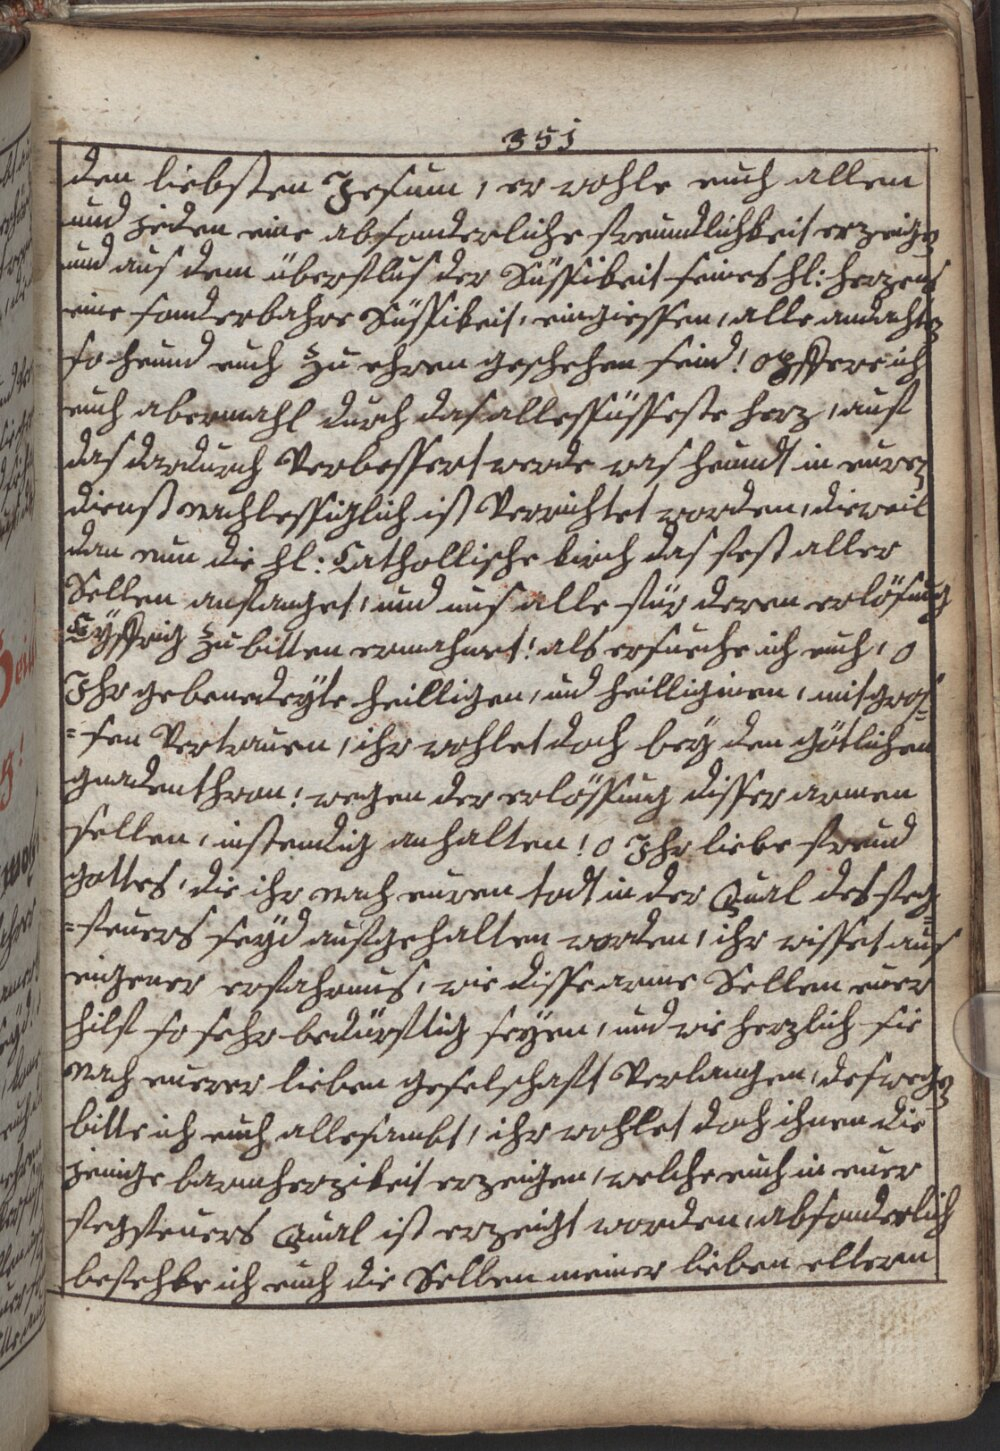 351
den liebsten Jesum, er wohle euch allen
und jeden eine absonderliche freundlichkeit erzeigen
und aus dem überflus der Süssikeit seines hl: herzens
eine sonderbahre Süssikeit, eingiessen, alle andachten
so heund euch zu ehren geschehen seind! opffere ich
euch abermahl durch das allessüsseste herz, auf
das dardurch Verbessert werde was heundt in euren
dienst nachlessiglich ist Verrichtet worden, dieweil
dan nun die hl: Cathollische kirch das fest aller
Sellen anfanget, und uns alle für deren erlösung
Eyffrig zu bitten ermahnet! als ersueche ich euch, o
Ihr gebenedeyte heilligen, und heilliginen, mit gros-
=sen Vertrauen, ihr wohlet doch bey den götlichen
gnadenthron! wegen der erlössung disser armen
sellen, instendig anhalten! o Ihr liebe freund
gottes, die ihr nach euren todt in der Qual des feg-
=feuers seyd aufgehalten worden, ihr wisset aus
eigener erfahrnus, wie disse arme Sellen euer
hilf so sehr bedürftig seyen, und wie herzlich sie
nach euerer lieben geselschaft Verlangen, deswegen
bitte ich euch allesambt, ihr wohlet doch ihnen die
jenige barmherzikeit erzeigen, welche euch in euer
fegfeuers Qual ist erzeigt worden, absonderlich
befehle ich euch die Sellen meiner lieben eltern